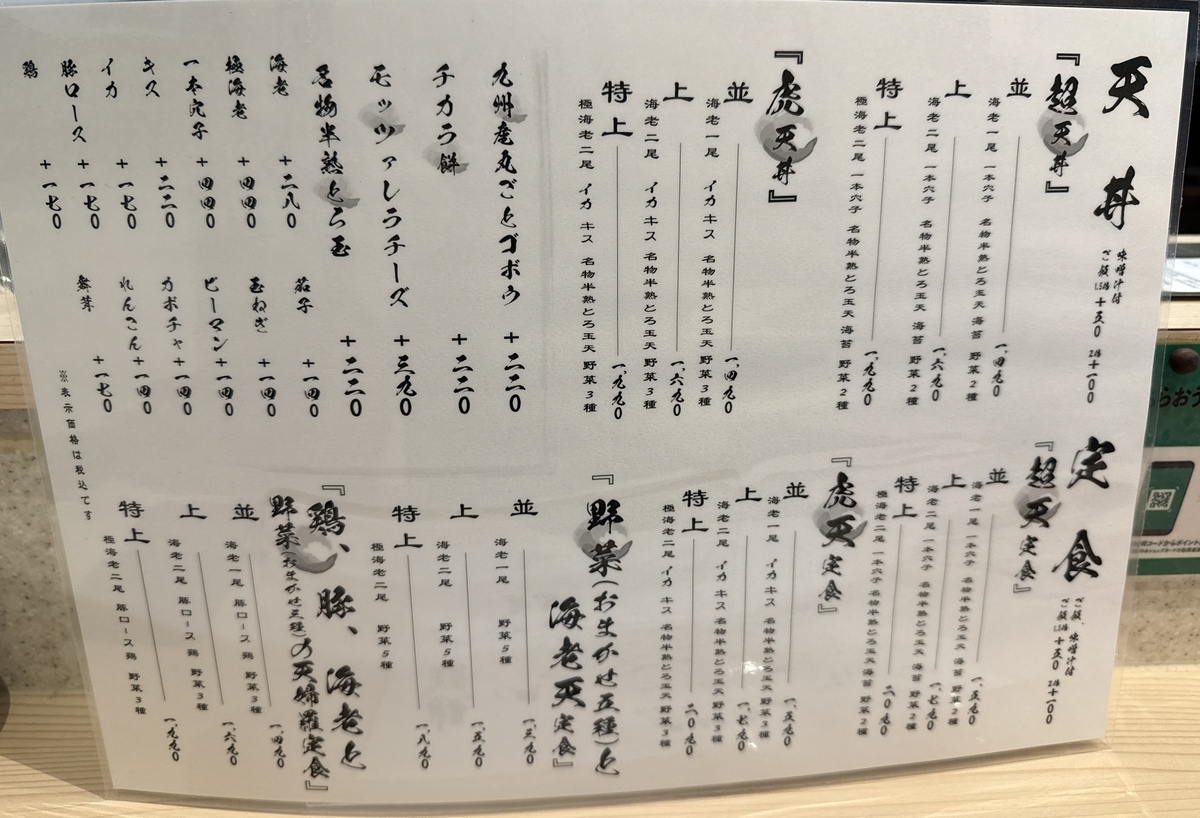 天丼
味噌汁付
ご飯1.5倍+五〇 2倍+一〇〇
『超天丼』
並 一、四九〇
海老一尾 一本穴子 名物半熟とろ玉天 海苔 野菜2種
上 一、六九〇
海老二尾 一本穴子 名物半熟とろ玉天 海苔 野菜2種
特上 一、九九〇
極海老二尾 一本穴子 名物半熟とろ玉天 海苔 野菜2種
『虎天丼』
並 一、四九〇
海老一尾 イカ キス 名物半熟とろ玉天 野菜3種
上 一、六九〇
海老二尾 イカ キス 名物半熟とろ玉天 野菜3種
特上 一、九九〇
極海老二尾 イカ キス 名物半熟とろ玉天 野菜3種
九州産丸ごとゴボウ +二二〇
チカラ餅 +二二〇
モッツァレラチーズ +三九〇
名物半熟とろ玉 +二二〇
海老 +二八〇
極海老 +四四〇
一本穴子 +四四〇
キス +二二〇
イカ +一七〇
豚ロース +一七〇
鶏 +一七〇
茄子 +一四〇
玉ねぎ +一四〇
ピーマン +一四〇
カボチャ +一四〇
れんこん +一四〇
舞茸 +一七〇
※表示価格は税込です
定食
ご飯、味噌汁付
ご飯1.5倍+五〇 2倍+一〇〇
『超天定食』
並 一、五九〇
海老一尾 一本穴子 名物半熟とろ玉天 海苔 野菜2種
上 一、七九〇
海老二尾 一本穴子 名物半熟とろ玉天 海苔 野菜2種
特上 二、〇九〇
極海老二尾 一本穴子 名物半熟とろ玉天 海苔 野菜2種
『虎天定食』
並 一、五九〇
海老一尾 イカ キス 名物半熟とろ玉天 野菜3種
上 一、七九〇
海老二尾 イカ キス 名物半熟とろ玉天 野菜3種
特上 二、〇九〇
極海老二尾 イカ キス 名物半熟とろ玉天 野菜3種
『野菜(おまかせ五種)と
海老天定食』
並 一、三九〇
海老一尾 野菜5種
上 一、五九〇
海老二尾 野菜5種
特上 一、八九〇
極海老二尾 野菜5種
『鶏、豚、海老と
野菜(おまかせ三種)の天婦羅定食』
並 一、四九〇
海老一尾 豚ロース 鶏 野菜3種
上 一、六九〇
海老二尾 豚ロース 鶏 野菜3種
特上 一、九九〇
極海老二尾 豚ロース 鶏 野菜3種
らおう